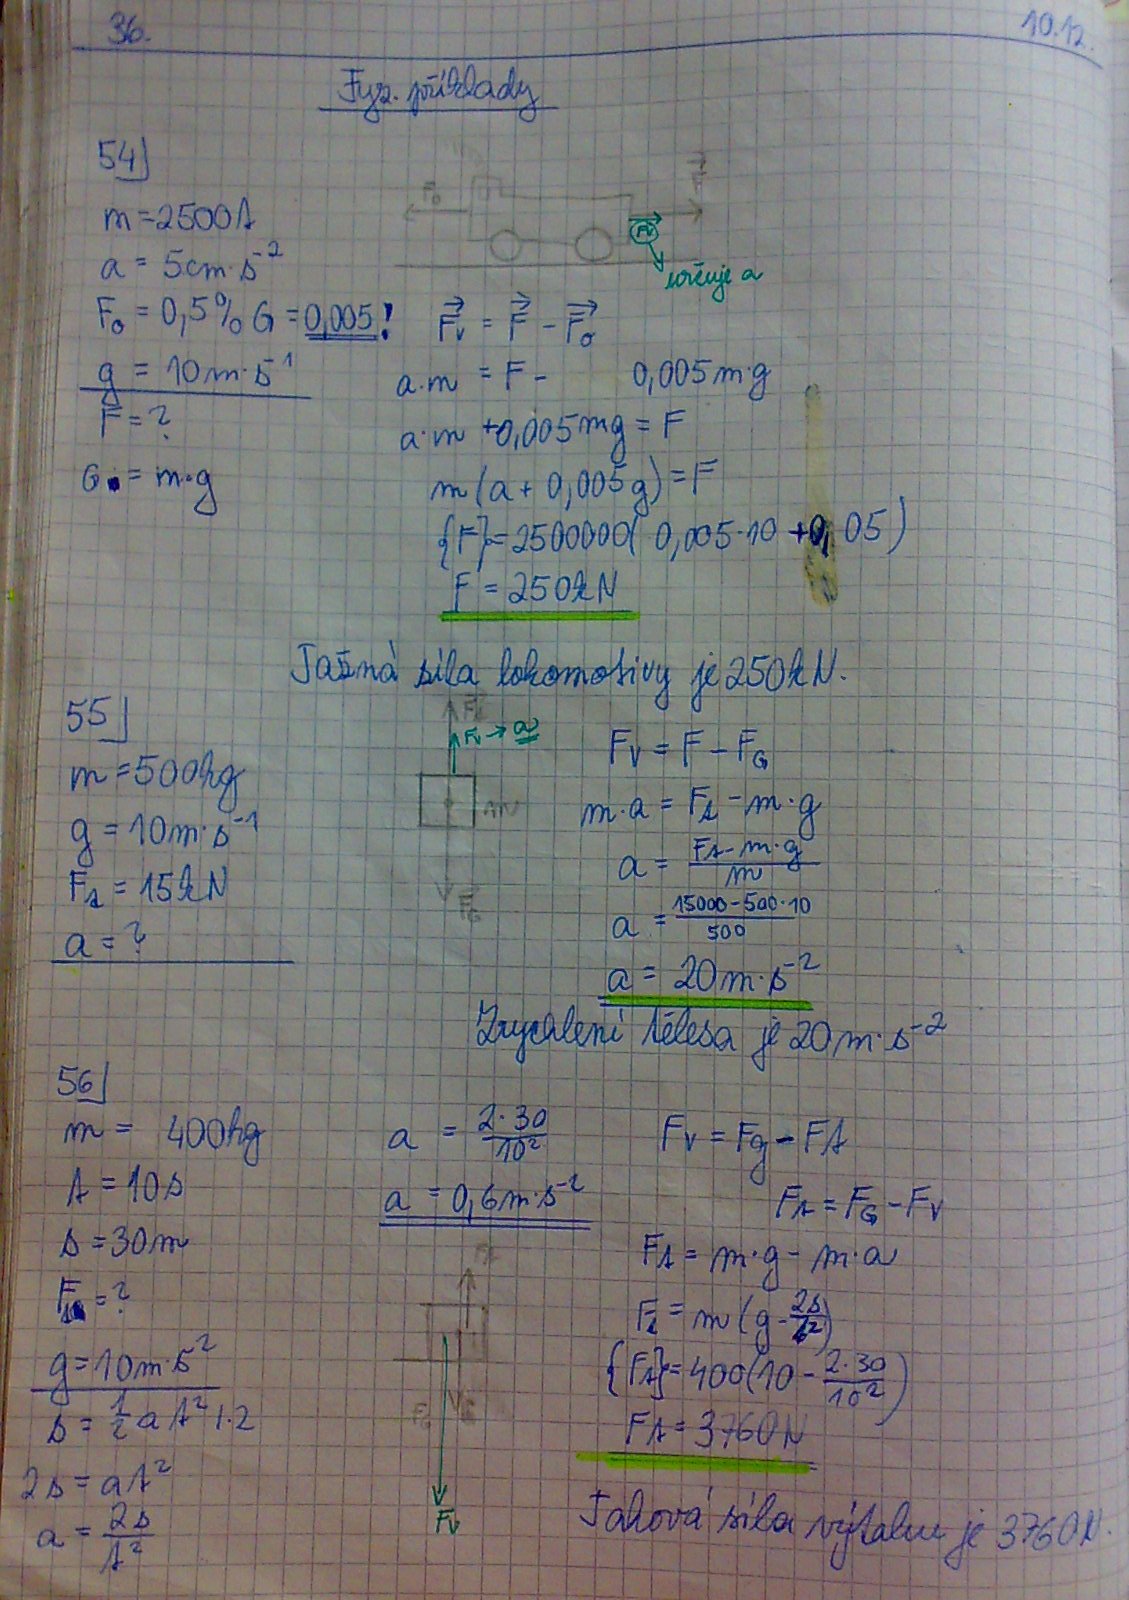 36.
10.12.
Fyz. příklady
54
m = 2500t
a = 5cm·s⁻²
F₀ = 0,5% G = 0,005!
g = 10m·s⁻¹
F = ?
G = m·g
F₀
F
Fv
určuje a
Fv = F - F₀
a·m = F - 0,005m·g
a·m + 0,005mg = F
m(a + 0,005g) = F
{F} = 2500000(0,005·10 + 0,05)
F = 250kN
Tažná síla lokomotivy je 250kN.
55
m = 500kg
g = 10m·s⁻¹
Ft = 15kN
a = ?
Fv → a
FG
Fv = F - FG
m·a = Ft - m·g
a = (Ft - m·g)/m
a = (15000 - 500·10)/500
a = 20m·s⁻²
Zrychlení tělesa je 20m·s⁻²
56
m = 400kg
t = 10s
s = 30m
Ft = ?
g = 10m·s⁻²
s = 1/2 a t² |·2
2s = at²
a = 2s/t²
a = 2·30/10²
a = 0,6m·s⁻²
Fv
Fv = Fg - Ft
Ft = FG - Fv
Ft = m·g - m·a
Ft = m(g - 2s/t²)
{Ft} = 400(10 - 2·30/10²)
Ft = 3760N
Tahová síla výtahu je 3760N.